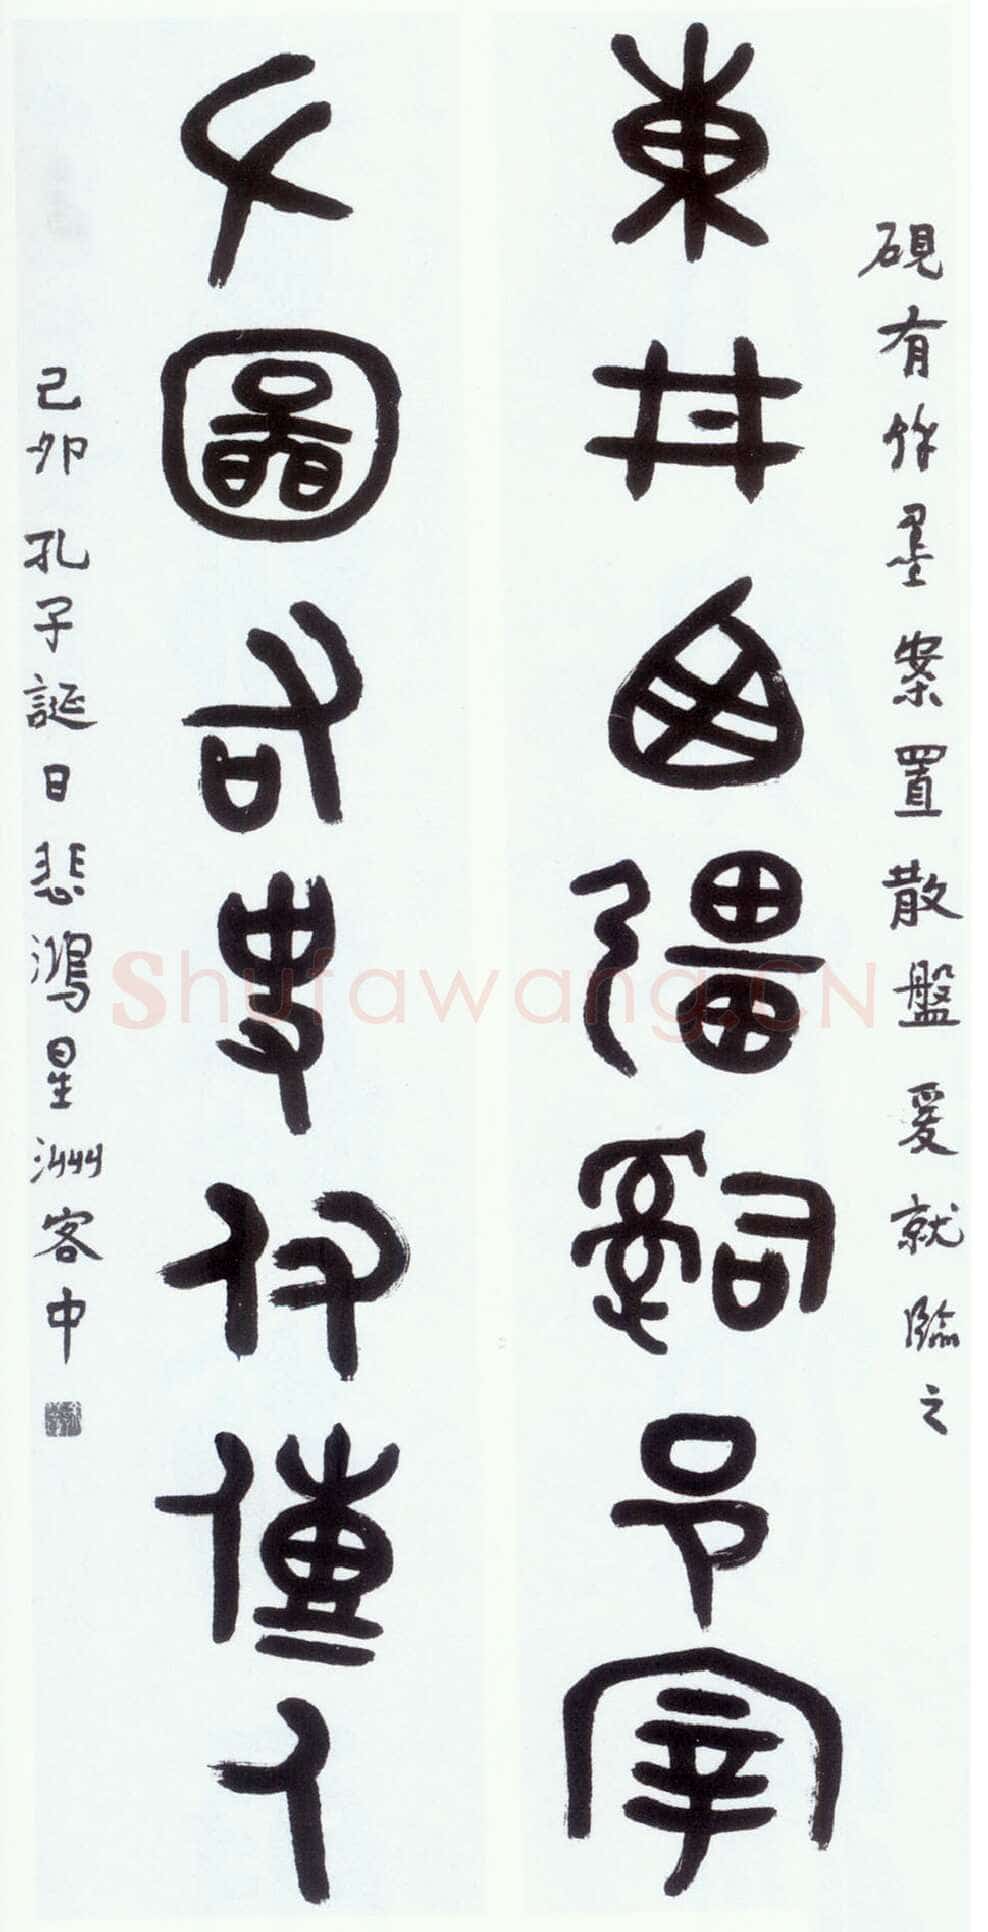 硯有餘墨案置散盤爰就臨之
東井西疆𤔲邑宰
左圖右史付僕人
己卯孔子誕日悲鴻星洲客中
Shufawang.CN